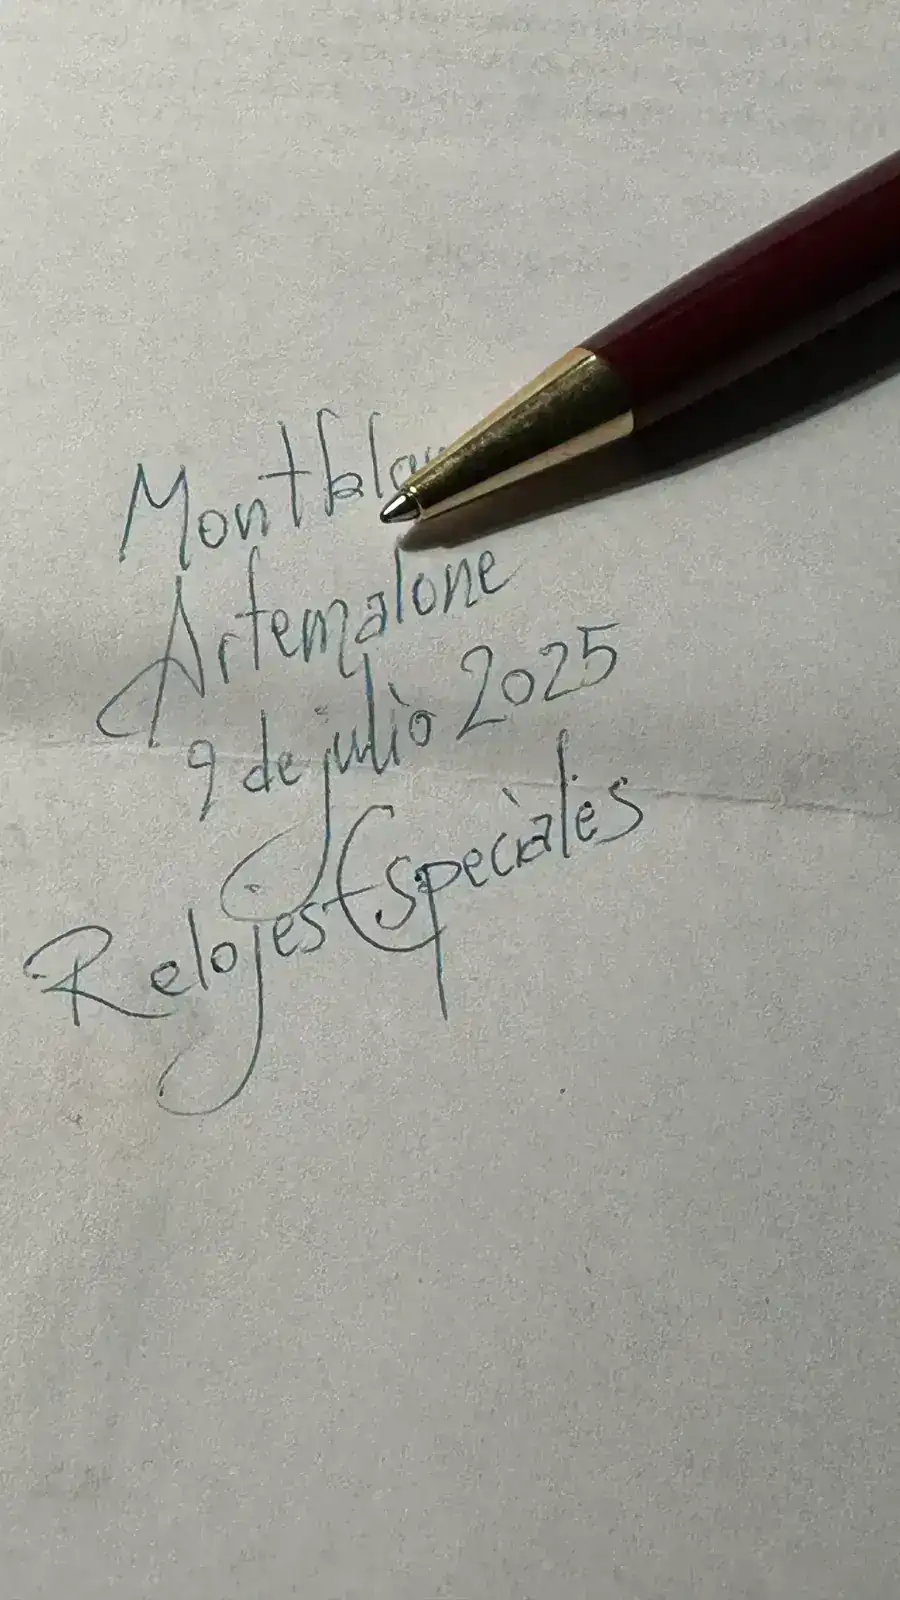 Montblan
Artemalone
9 de julio 2025
Relojes Especiales